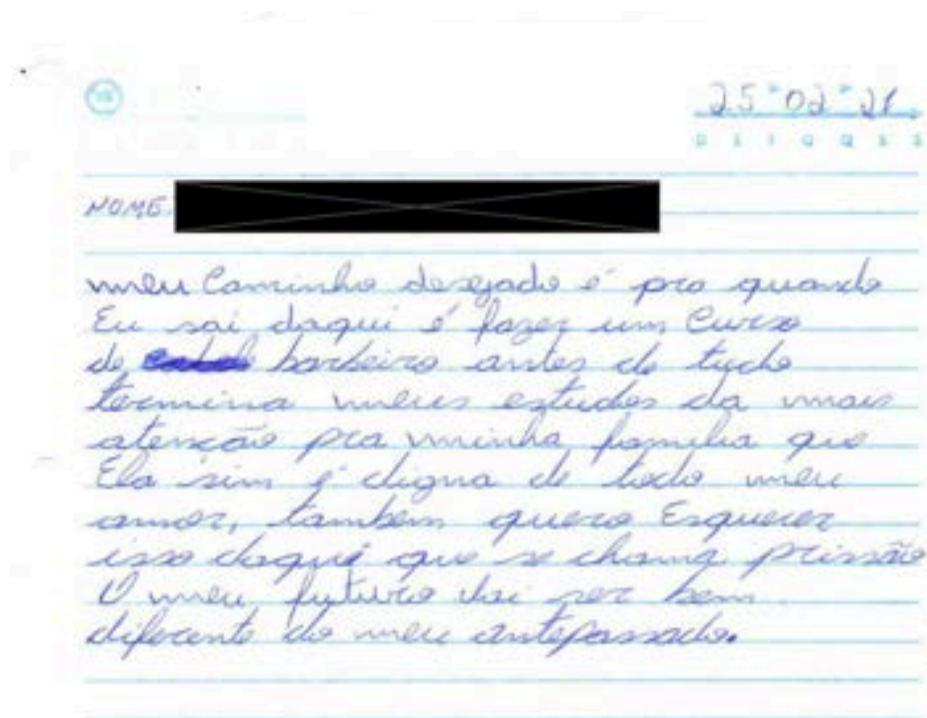 25 02 21
D S T Q Q S S
NOME
meu Caminho desejado é pro quando
Eu sai daqui é fazer um Curso
de barbeiro antes de tudo
termina meus estudos da mais
atenção pra minha familia que
Ela sim é digna de todo meu
amor, também quero Esquecer
isso daqui que se chama prissão
O meu futuro vai ser bem
diferente do meu antepassado.